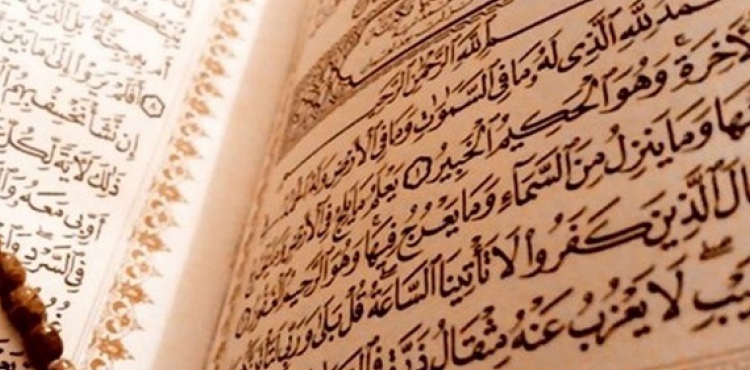 بِسْمِ اللَّهِ الرَّحْمَٰنِ الرَّحِيمِ
مْدُ لِلَّهِ الَّذِى لَهُ مَا فِى السَّمَٰوَٰتِ وَمَا فِى الْأَرْضِ وَلَهُ الْحَمْدُ
لْآخِرَةِ وَهُوَ الْحَكِيمُ الْخَبِيرُ ١ يَعْلَمُ مَا يَلِجُ فِى الْأَرْضِ وَمَا
هَا وَمَا يَنزِلُ مِنَ السَّمَآءِ وَمَا يَعْرُجُ فِيهَا وَهُوَ الرَّحِيمُ الْغَفُورُ
الَ الَّذِينَ كَفَرُوا لَا تَأْتِينَا السَّاعَةُ قُلْ بَلَىٰ وَرَبِّى
يْبِ لَا يَعْزُبُ عَنْهُ مِثْقَالُ ذَرَّةٍ فِى
أَم بِهِ جِنَّةٌ بَلِ الَّذِينَ
٨ أَفَلَمْ يَرَوْا إِلَىٰ مَا بَيْنَ
إِن نَّشَأْ نَخْسِفْ بِهِمُ
ذَٰلِكَ لَآيَةً لِّكُلِّ
أَوِّبِى مَعَهُ وَال
فِى السَّرْدِ